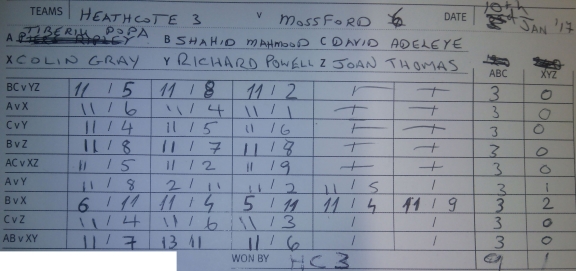 TEAMS HEATHCOTE 3 V MOSSFORD 6 DATE 10th JAN '17
A TIBERIU POPA B SHAHID MAHMOOD C DAVID ADELEYE
X COLIN GRAY Y RICHARD POWELL Z JOAN THOMAS ABC XYZ
BC v YZ 11 / 5 11 / 8 11 / 2 / / 3 0
A v X 11 / 6 11 / 4 11 / 1 / / 3 0
C v Y 11 / 4 11 / 5 11 / 6 / / 3 0
B v Z 11 / 8 11 / 7 11 / 8 / / 3 0
AC v XZ 11 / 5 11 / 2 11 / 9 / / 3 0
A v Y 11 / 8 2 / 11 11 / 2 11 / 5 / 3 1
B v X 6 / 11 11 / 4 5 / 11 11 / 4 11 / 9 3 2
C v Z 11 / 4 11 / 6 11 / 3 / / 3 0
AB v XY 11 / 7 13 11 11 / 6 / / 3 0
WON BY HC3